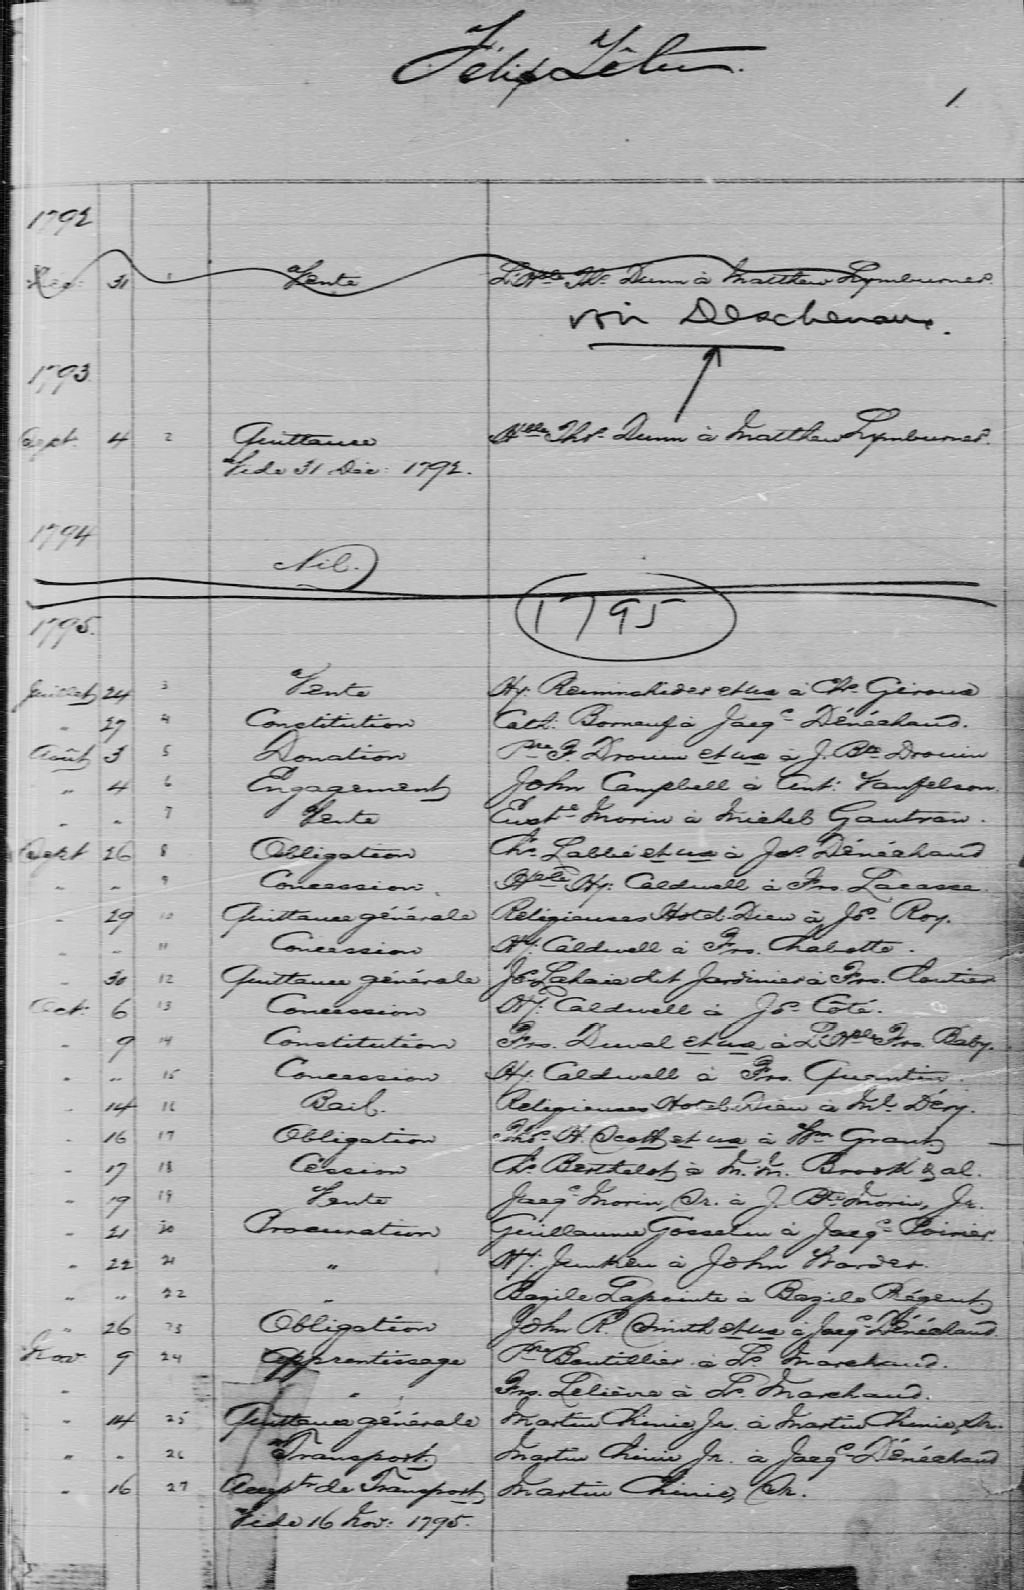 Félix Têtu.
1.
1792
Déc: 31 1 Vente L'Hble Ths. Dunn à Matthew Lymburner.
voir Deschenaux.
1793.
Sept. 4 2 Quittance Hble Thos. Dunn à Matthew Lymburner.
Vide 31 Déc: 1792.
1794
Nil.
1795
1795.
Juillet 24 3 Vente Hy: et ux à Chs. Giroux
" 27 4 Constitution Cath. Borneuf à Jacqs. Dénéchaud.
Août 3 5 Donation Pre F. Drouin et ux à J. Bte Drouin
" 4 6 Engagement John Campbell à Ant: Vanfelson.
" " 7 Vente Euste Morin à Michel Gauvran.
Sept 26 8 Obligation Chs. Labbé et ux à Jas. Dénéchaud
" " 9 Concession. Hble Hy: Caldwell à Frs. Lacasse.
" 29 10 Quittance générale Religieuses Hotel-Dieu à Js. Roy.
" " 11 Concession Hy. Caldwell à Frs. Chabotte.
" 30 12 Quittance générale Js Lahaie dit Jardinier à Frs. Cloutier
Oct: 6 13 Concession Hy. Caldwell à Js. Côté.
" 9 14 Constitution Frs. Duval et ux à L'Hble Frs. Baby.
" " 15 Concession Hy. Caldwell à Frs. Quentin.
" 14 16 Bail. Religieuses Hotel-Dieu à Ml. Déry.
" 16 17 Obligation Ths. H. Scott et ux à Wm Grant
" 17 18 Cession Chs Berthelot à M. M. Brook & al.
" 19 19 Vente Jacqs Morin, Sr. à J. Bte Morin, Jr.
" 21 20 Procuration Guillaume Gosselin à Jacqs. Poirier.
" 22 21 " Hy. Junken à John Warder.
" " 22 " Bazile Lapointe à Bazile Régent
" 26 23 Obligation John R. Smith et ux à Jacqs. Dénéchaud.
Nov. 9 24 Apprentissage Pre Boutillier à Ls. Marchaud.
" " Frs. Lelièvre à Ls. Marchaud.
" 14 25 Quittance générale Martin Chinic Jr. à Martin Chinic, Sr.
" " 26 Transport. Martin Chinic Jr. à Jacqs. Dénéchaud
" 16 27 Accept. de Transport Martin Chinic, Sr.
Vide 16 Nov: 1795.